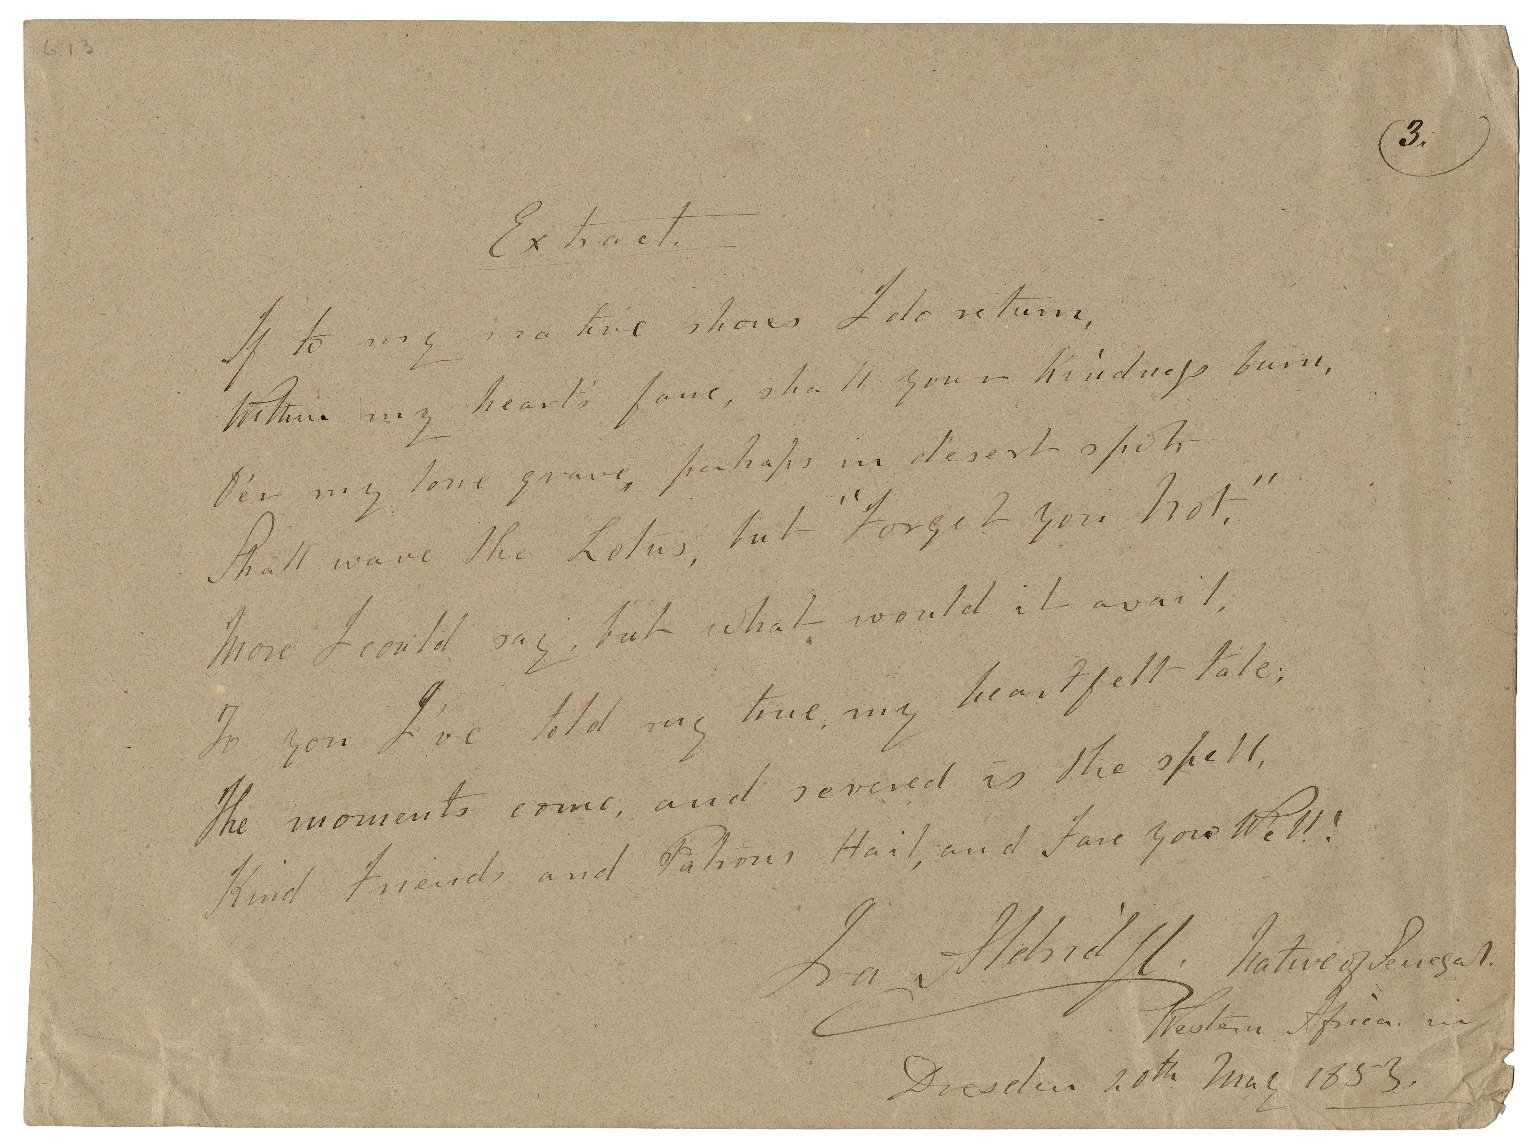 613
3.
Extract.
If to my native shores I do return,
Within my heart's fane, shall your Kindness burn,
O'er my lone grave, perhaps in desert spot,
Shall wave the Lotus, but "Forget you Not."
More I could say, but what would it avail,
To you I've told my true, my heartfelt tale;
The moments come, and severed is the spell,
Kind Friends and Patrons Hail, and Fare you Well!
Ira Aldridge. Native of Senegal.
Western Africa. in
Dresden 20th May 1853.